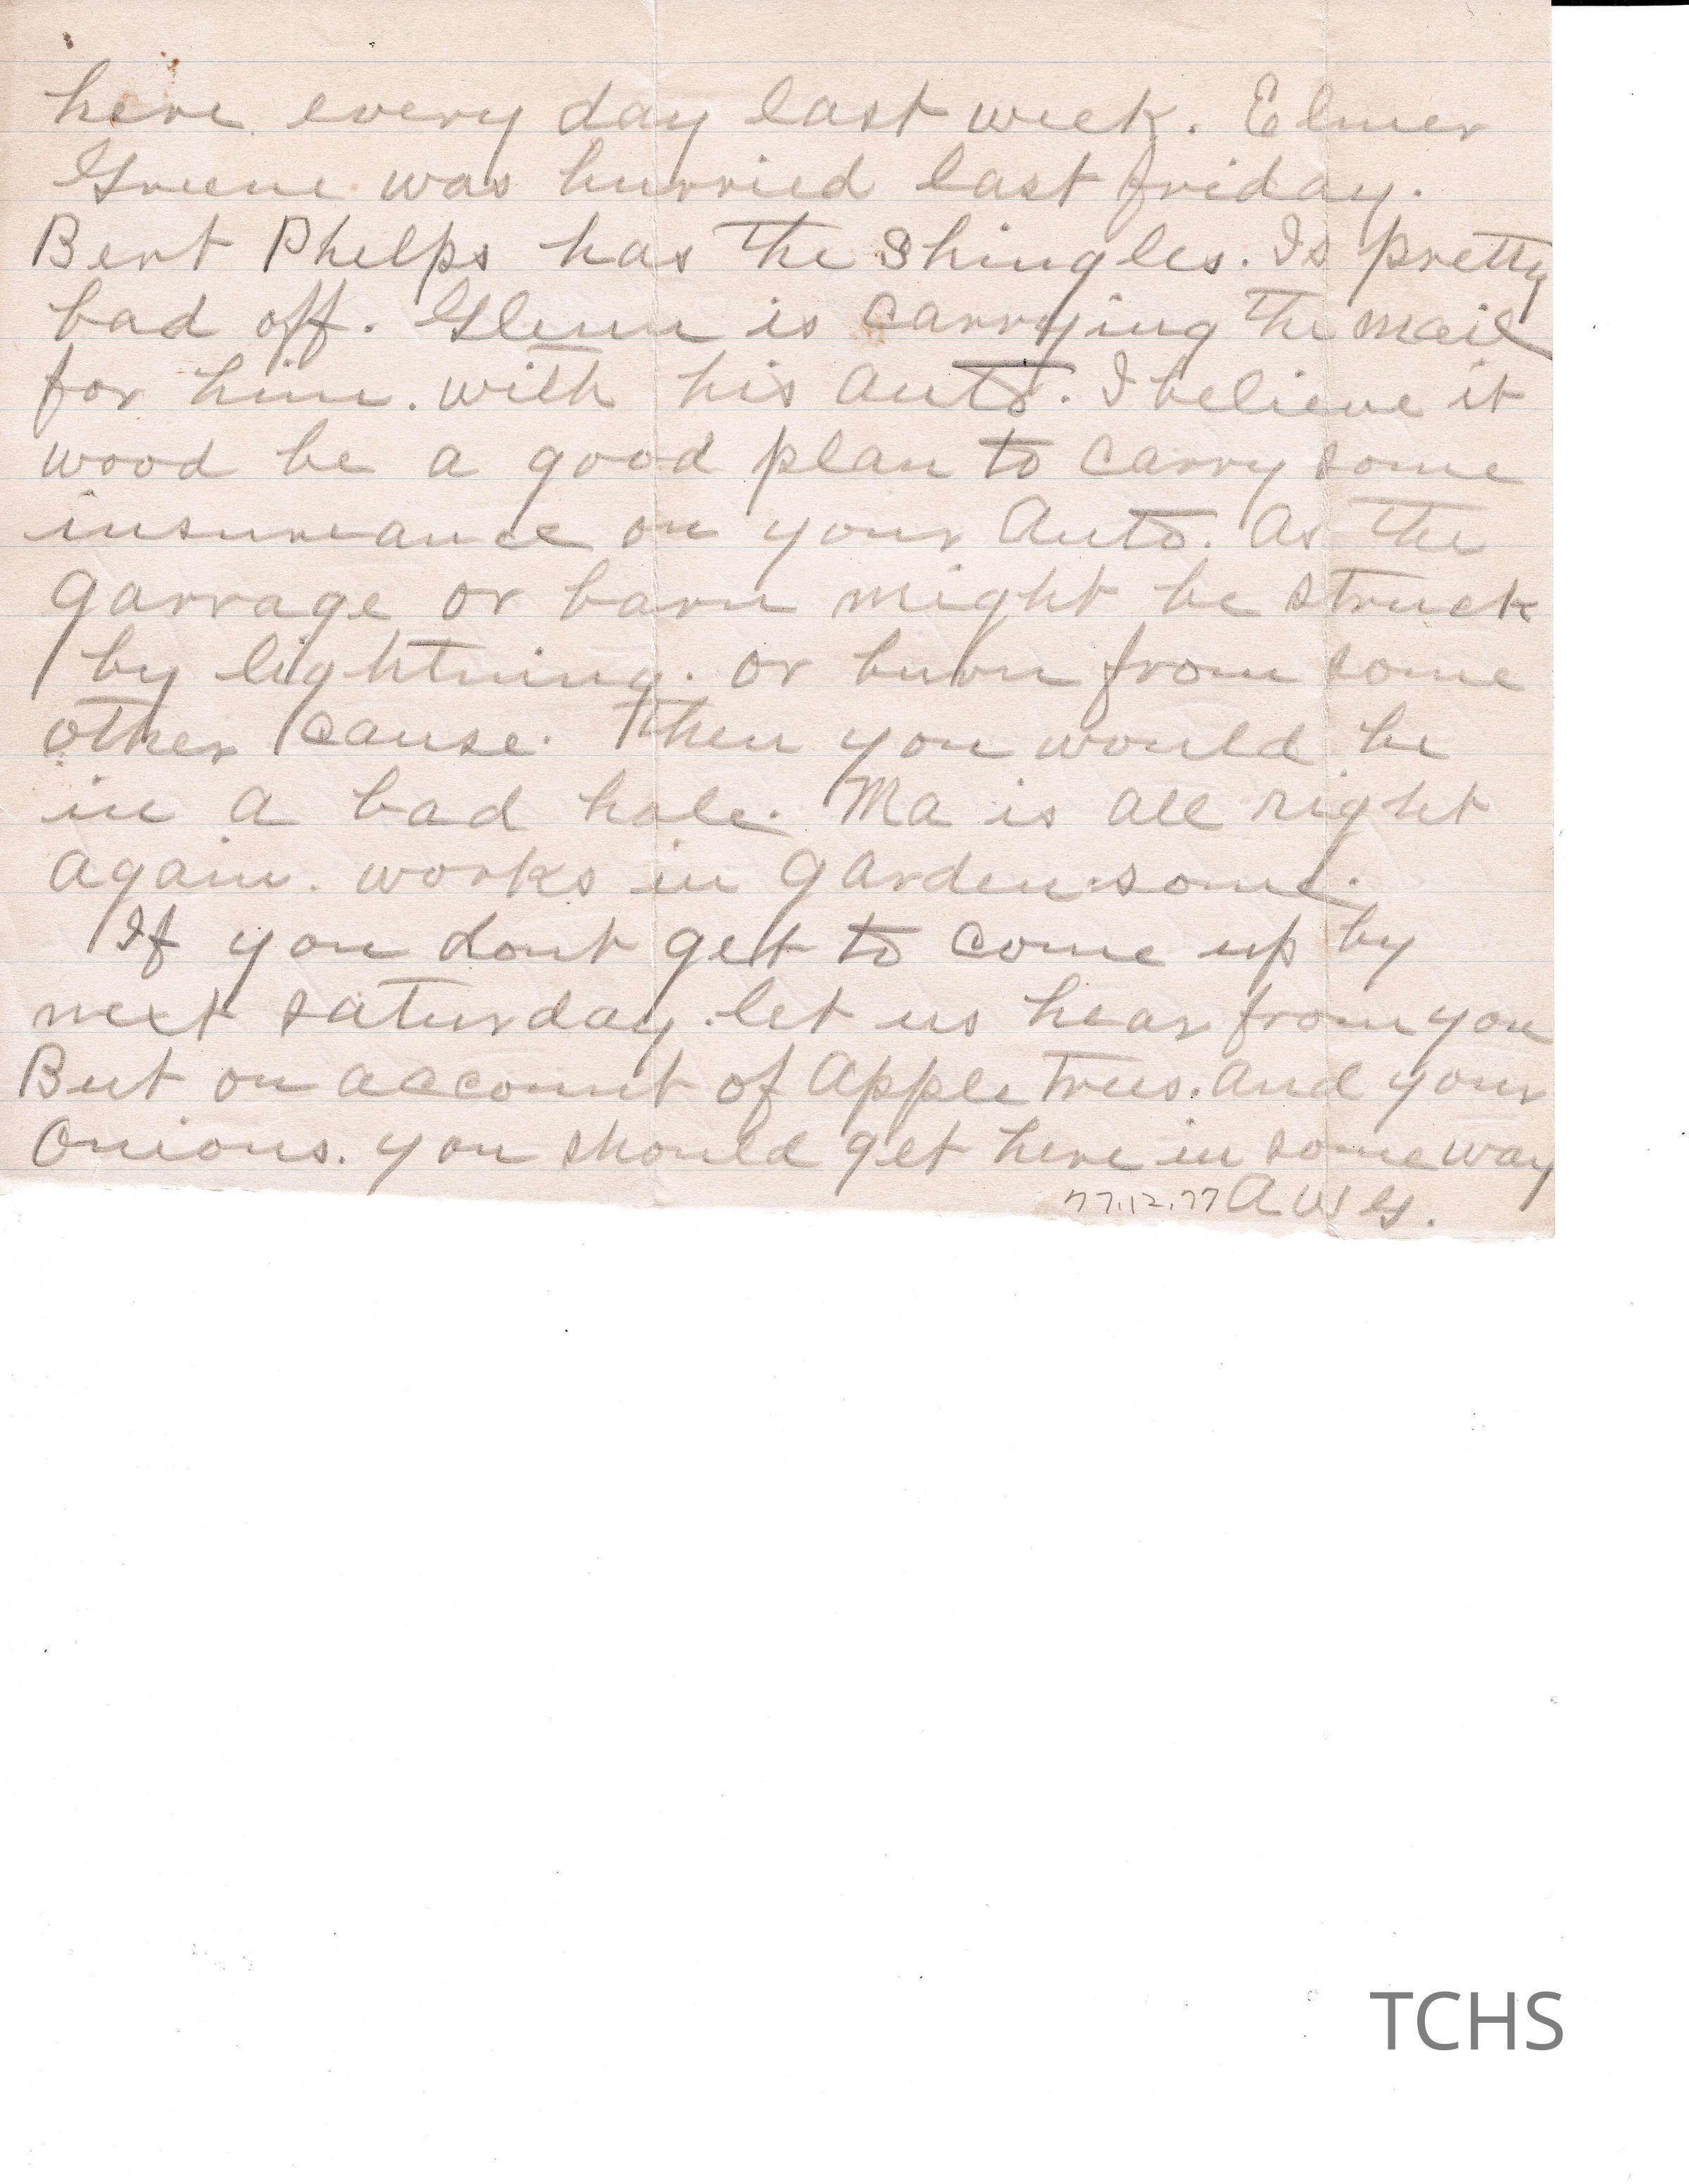 here every day last week. Elmer
Greene was burried last friday.
Bert Phelps has the Shingles. Is pretty
bad off. Glenn is carrying the mail
for him. with his auto. I believe it
wood be a good plan to carry some
insureance on your auto. As the
garrage or barn might be struck
by lightning. or burn from some
other cause. Then you would be
in a bad hole. Ma is all right
again. works in garden some.
If you dont get to come up by
next saturday. let us hear from you
But on account of Apple Trees. and your
Onions. you should get here in some way
77.12.77 A W G.
TCHS